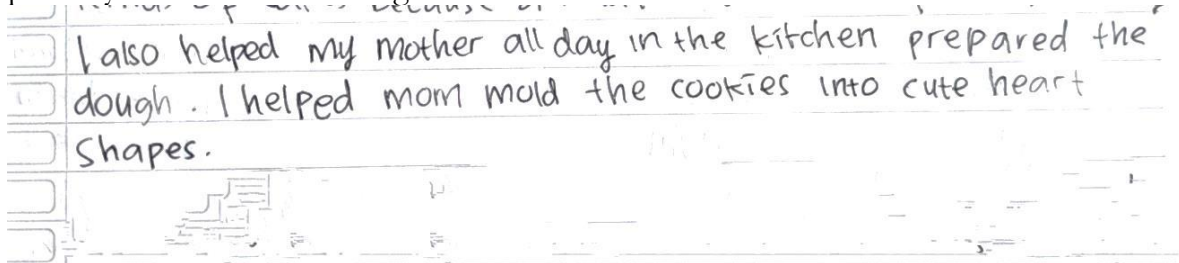 I also helped my mother all day in the kitchen prepared the
dough. I helped mom mold the cookies into cute heart
shapes.